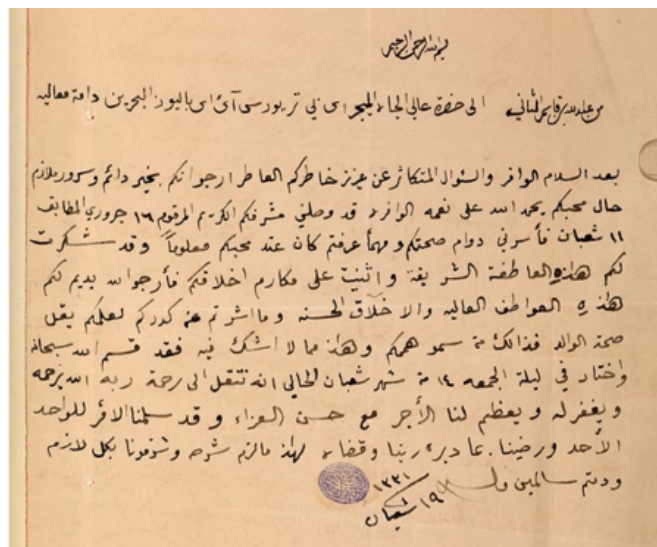 بسم الله الرحمن الرحيم
من عبدالله بن قاسم الثاني الى حضرة عالي الجاه الميجر اي بي تريور سي آئ اي باليوز البحرين دامة معاليه
بعد السلام الوافر والسئوال المتكاثر عن عزيز خاطركم العاطر ارجو انكم بخير دائم وسرور ملازم
حال محبكم يحمد الله على نعمه الوافره قد وصلني مشرفكم الكريم المرقوم ١٦ جروري المطابق
١١ شعبان فأسرني دوام صحتكم ومهما عرفتم كان عند محبكم معلوماً وقد شكرت
لكم هاذه العاطفة الشريفة واثنيت على مكارم اخلاقكم فأرجو الله يديم لكم
هاذه العواطف العاليه والاخلاق الحسنه وما اشرتم عنه كدركم لعلمكم بقل
صحة الوالد فذالك من سمو هممكم وهاذا مما لا اشك فيه فقد قسم الله سبحانه
واختار في ليلة الجمعه ١٤ من شهر شعبان الحالي انه تنتقل الى رحمة ربه الله يرحمه
ويغفر له ويعظم لنا الأجر مع حسن العزاء وقد سلمنا الامر للواحد
الأحد ورضينا بما دبره ربنا وقضاه لهاذا مالزم شرحه وشرفونا بكل لازم
ودمتم سالمين
١٩ شعبان ١٣٣١